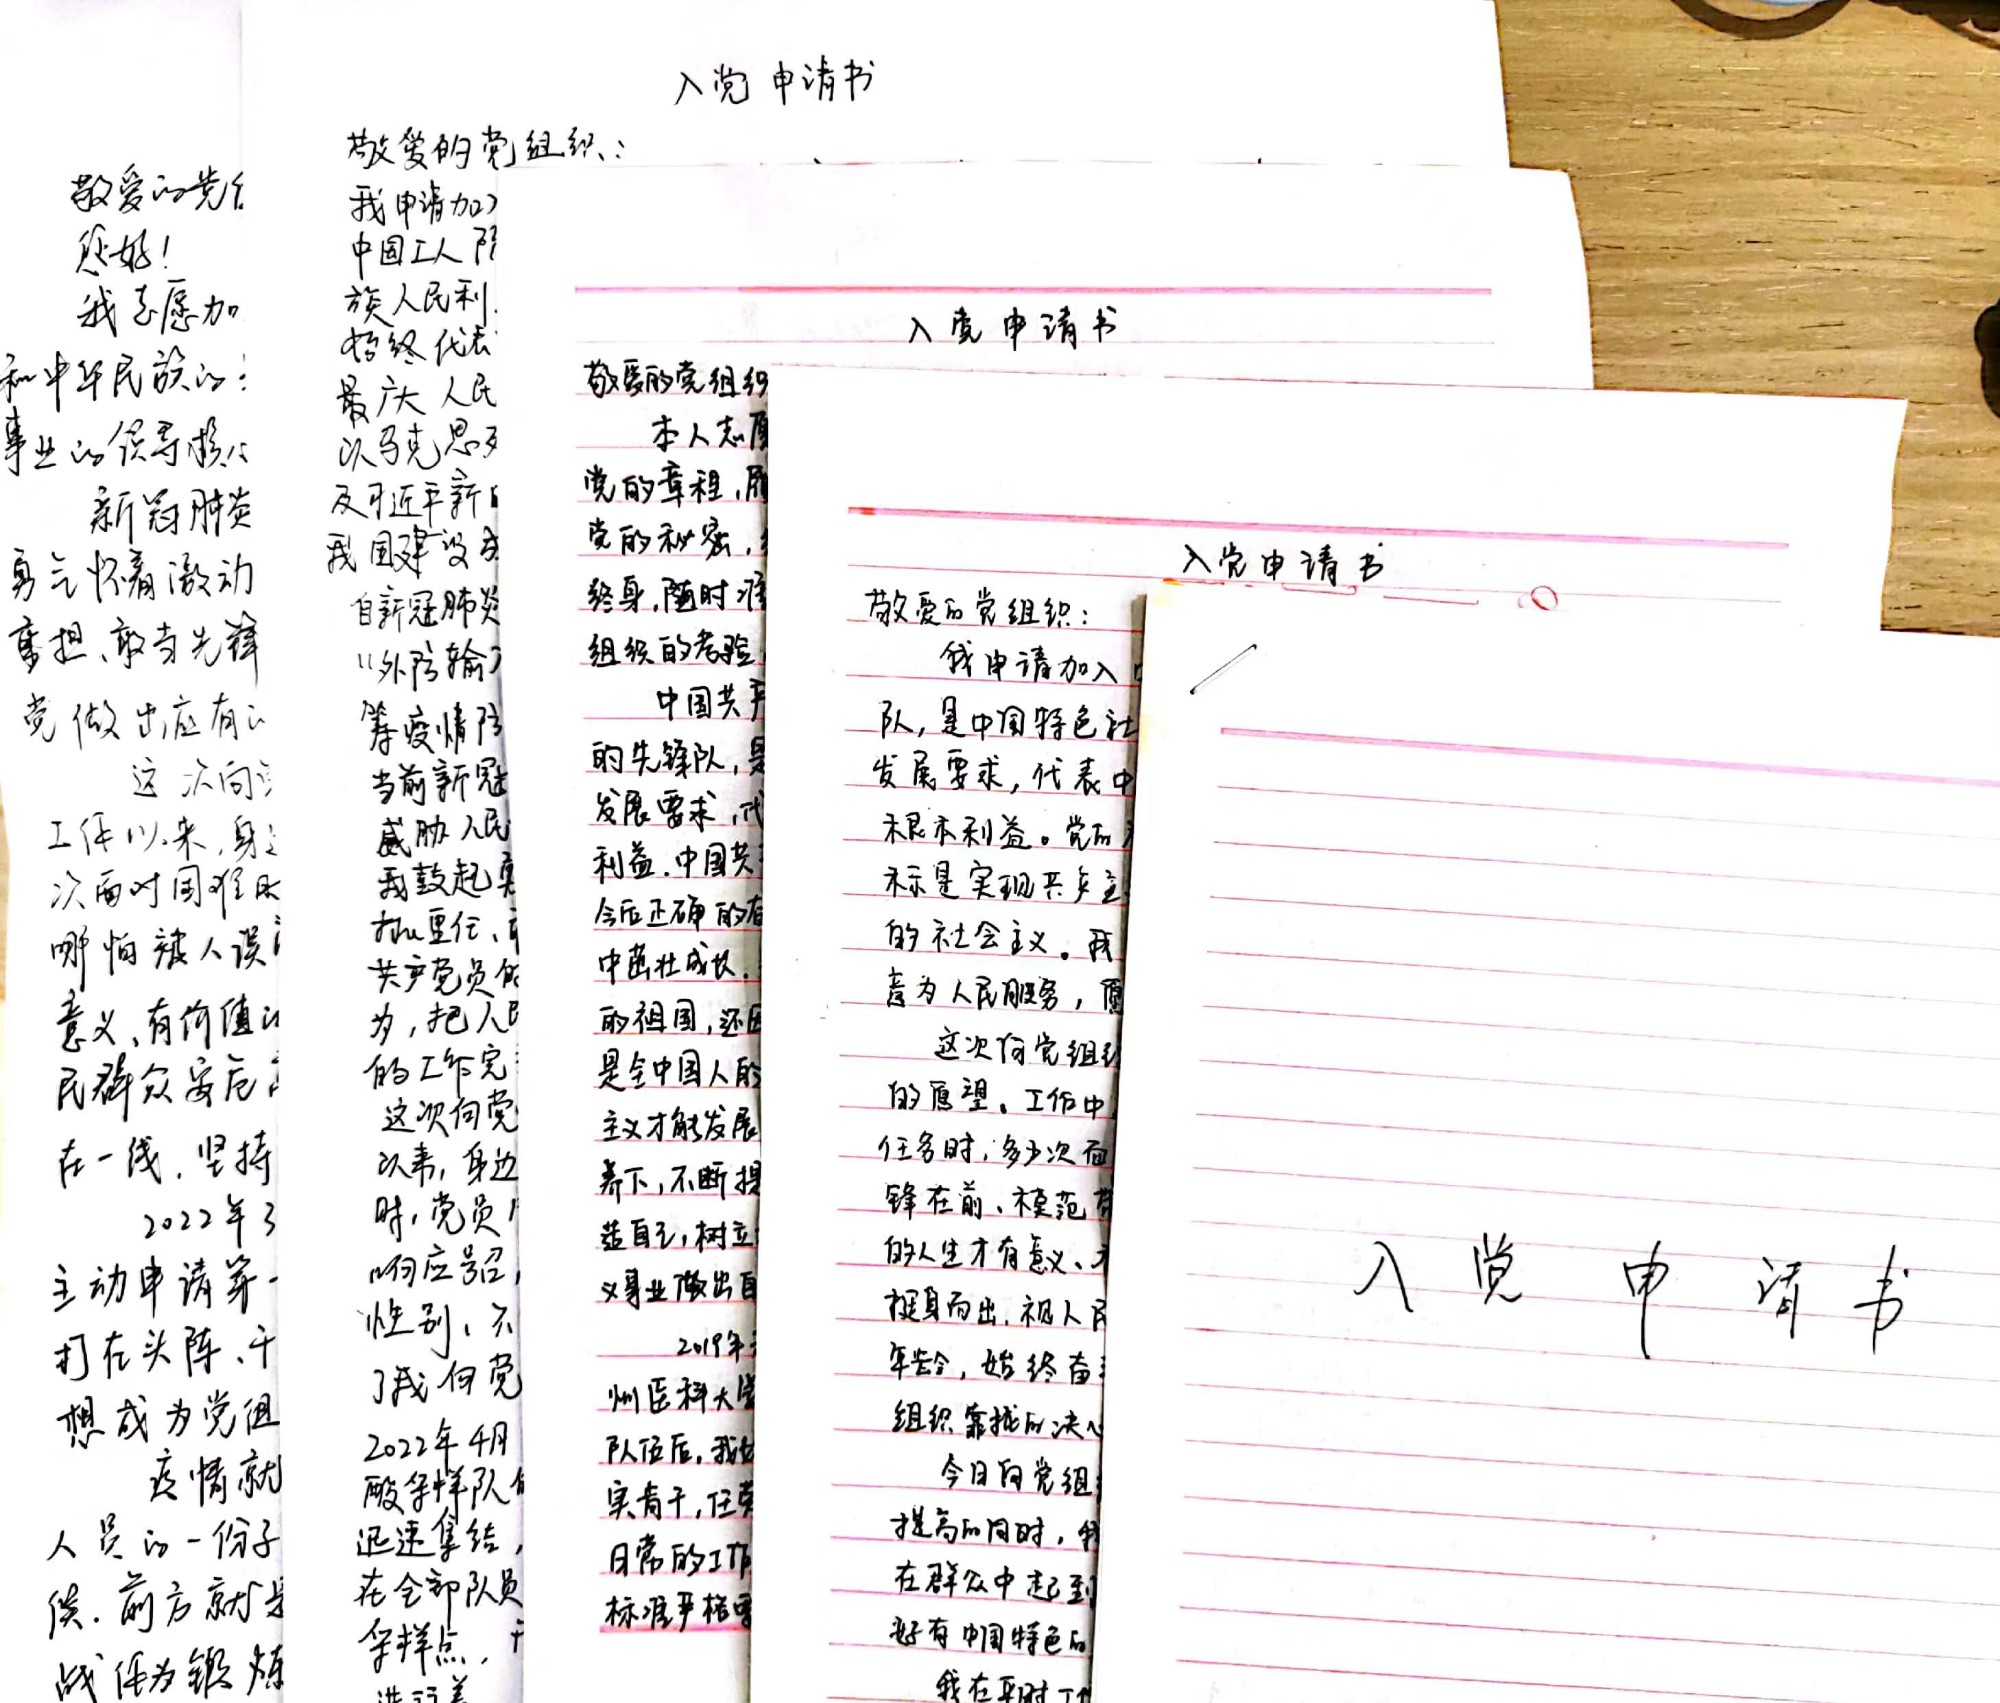 敬爱的党
您好!
我志愿加
和中华民族的
事业的领导核心
新冠肺炎
勇气怀着激动
重担、敢当先锋
党做出应有的
这次向
工作以来,身
次面对困难
哪怕被人误
意义、有价值的
民群众安危
在一线,坚持
2022年3
主动申请第一
打在头阵、干
想成为党组
疫情就
人员的一份子
候.前方就是
战任为锻炼
入党申请书
敬爱的党组织:
我申请加入
中国工人
族人民利
始终代表
最广大人民
以马克思
及习近平新
我国建设
自新冠肺炎
"外防输入
筹疫情防
当前新冠
威胁人民
我鼓起勇
担重任、
共产党员的
为,把人民
的工作完
这次向党
以来,身边
时,党员
响应号召,
性别、不
了我向党
2022年4月
酸采样队
迅速集结,
在全部队员
采样点,干
入党申请书
敬爱的党组织
本人志愿
党的章程,履
党的秘密,
终身,随时准
组织的考验
中国共产
的先锋队,是
发展要求,代
利益.中国共
今后正确的
中茁壮成长.
的祖国,还
是全中国人的
主义才能发展
养下,不断提
造自己,树立
义事业做出自
2019年
州医科大学
队伍后,我
实肯干,任劳
日常的工作
标准严格要
入党申请书
敬爱的党组织:
我申请加入中
队,是中国特色社
发展要求,代表中
根本利益。党的
标是实现共产主
的社会主义。我
意为人民服务,愿
这次向党组织
的愿望。工作中
任务时,多少次面
锋在前、模范带
的人生才有意义、
挺身而出,视人民
年龄,始终奋
组织靠拢的决心
今日向党组
提高的同时,我
在群众中起到
好有中国特色的
我在平时工作
入党申请书